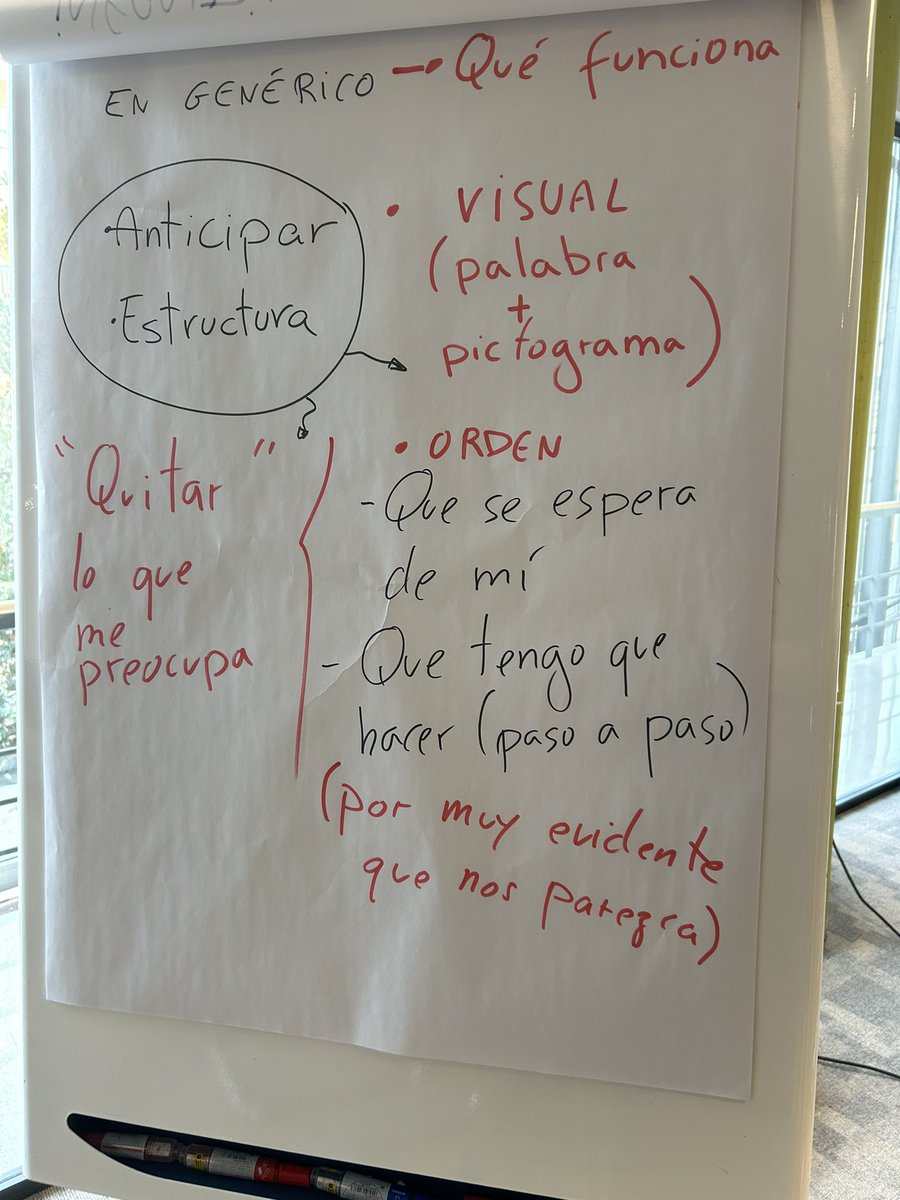 EN GENÉRICO → Qué funciona
·Anticipar
·Estructura
• VISUAL
(palabra
+
pictograma)
"Quitar"
lo que
me
preocupa
• ORDEN
- Que se espera
de mí
- Que tengo que
hacer (paso a paso)
(por muy evidente
que nos parezca)